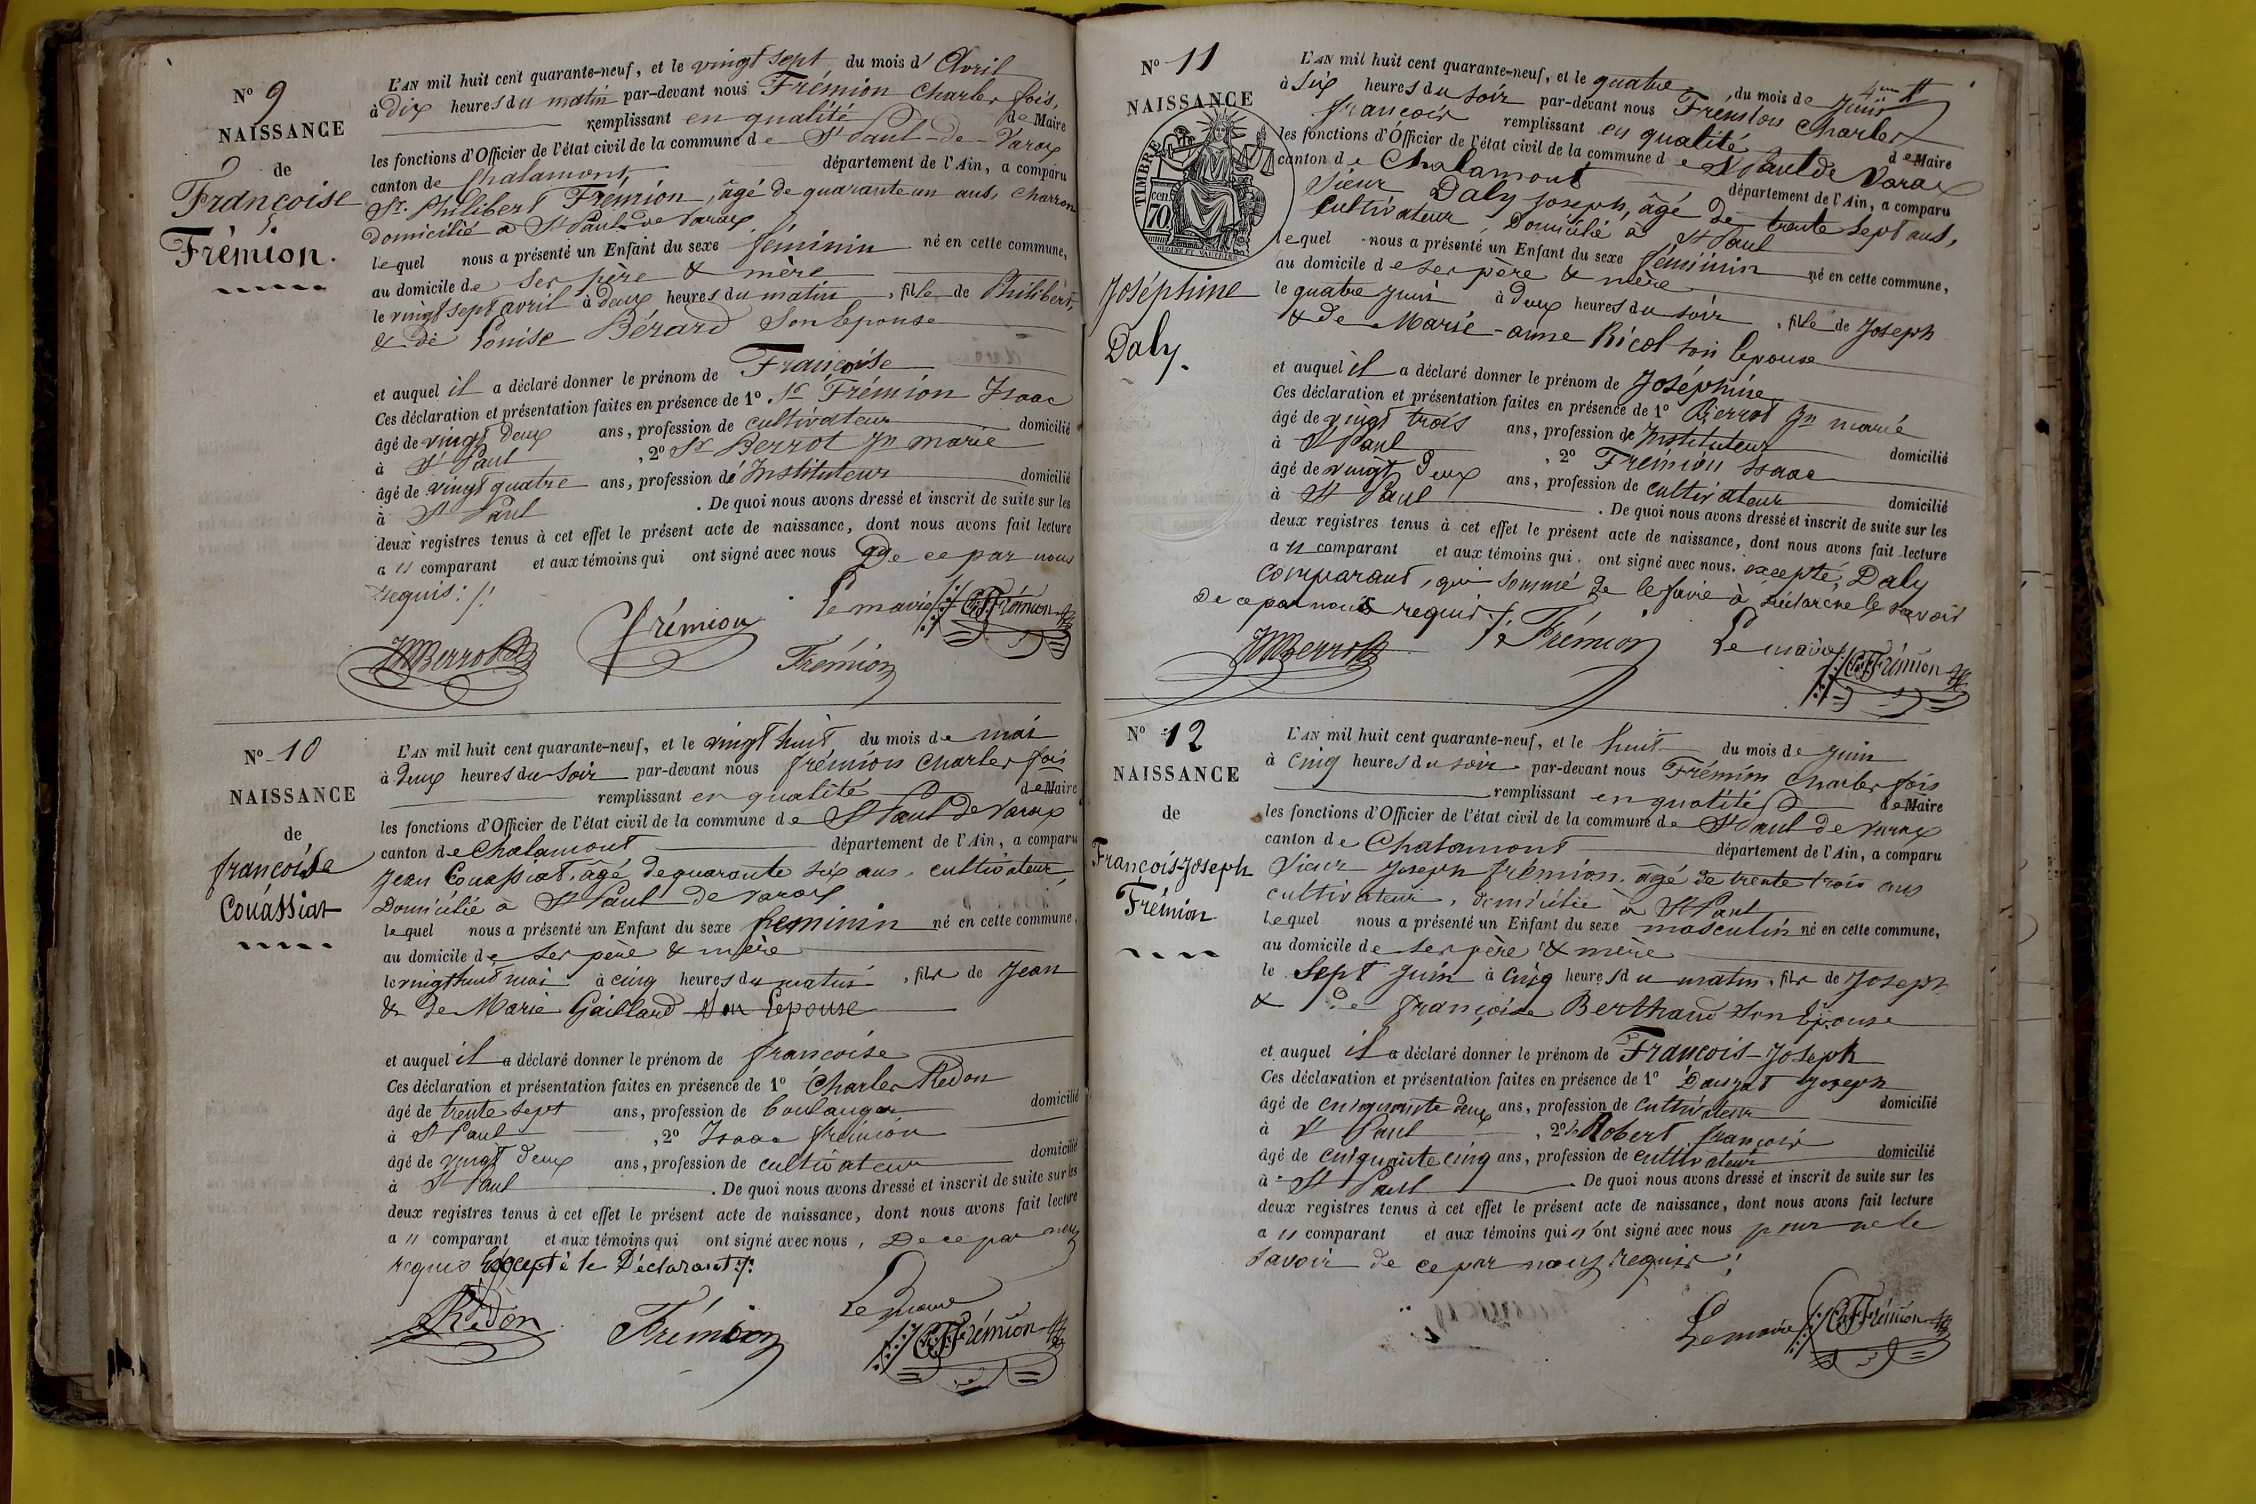 N° 9
NAISSANCE
de
Françoise
Frémion.
L'AN mil huit cent quarante-neuf, et le vingt sept du mois d' Avril
à Dix heures du matin par-devant nous Frémion Charles fois,
remplissant en qualité de Maire
les fonctions d'Officier de l'état civil de la commune de St Paul-de-Varax
canton de Chalamont département de l'Ain, a comparu
Sr. Philibert Frémion, âgé de quarante un ans, charron
domicilié à St Paul de Varax
lequel nous a présenté un Enfant du sexe féminin né en cette commune,
au domicile de ses père & mère
le vingt sept avril à deux heures du matin, fille de Philibert,
& de Louise Bérard son Epouse
et auquel il a déclaré donner le prénom de Françoise
Ces déclaration et présentation faites en présence de 1° Sr Frémion Isaac
âgé de vingt deux ans, profession de cultivateur domicilié
à St Paul, 2° Sr Berrot Jn marie
âgé de vingt quatre ans, profession de Instituteur domicilié
à St Paul. De quoi nous avons dressé et inscrit de suite sur les
deux registres tenus à cet effet le présent acte de naissance, dont nous avons fait lecture
a u comparant et aux témoins qui ont signé avec nous De ce par nous
requis ./.
JMBerrot Frémion Le maire CFFrémion
Frémion
N° 10
NAISSANCE
de
françoise
Couassiat
L'AN mil huit cent quarante-neuf, et le vingt huit du mois de mai
à deux heures du soir par-devant nous frémion Charles fois
remplissant en qualité de Maire
les fonctions d'Officier de l'état civil de la commune de St Paul de Varax
canton de Chalamont département de l'Ain, a comparu
Jean Couassiat, âgé de quarante six ans, cultivateur,
Domicilié à St Paul de Varax
lequel nous a présenté un Enfant du sexe feminin né en cette commune,
au domicile de ses père & mère
le vingt huit mai à cinq heures du matin, fille de Jean
& de Marie Gaillard son Epouse
et auquel il a déclaré donner le prénom de françoise
Ces déclaration et présentation faites en présence de 1° Charles Redon
âgé de trente sept ans, profession de boulanger domicilié
à St Paul, 2° Isaac frémion
âgé de vingt deux ans, profession de cultivateur domicilié
à St Paul. De quoi nous avons dressé et inscrit de suite sur les
deux registres tenus à cet effet le présent acte de naissance, dont nous avons fait lecture
a u comparant et aux témoins qui ont signé avec nous, De ce par nous
requis Excepté le Déclarant ./.
Redon Frémion Le maire CFFrémion
N° 11
NAISSANCE
TIMBRE
70 cen
Joséphine
Daly.
L'AN mil huit cent quarante-neuf, et le quatre du mois de Juin
à six heures du soir par-devant nous Frémion Charles
françois remplissant en qualité de Maire
les fonctions d'Officier de l'état civil de la commune de St Paul de Varax
canton de Chalamont département de l'Ain, a comparu
Sieur Daly Joseph, âgé de trente sept ans,
cultivateur, Domicilié à St Paul
lequel nous a présenté un Enfant du sexe féminin né en cette commune,
au domicile de ses père & mère
le quatre juin à deux heures du soir, fille de Joseph
& de Marie-anne Ricol son Epouse
et auquel il a déclaré donner le prénom de Joséphine
Ces déclaration et présentation faites en présence de 1° Berrot Jn marie
âgé de vingt trois ans, profession de Instituteur domicilié
à St Paul, 2° Frémion Isaac
âgé de vingt deux ans, profession de cultivateur domicilié
à St Paul. De quoi nous avons dressé et inscrit de suite sur les
deux registres tenus à cet effet le présent acte de naissance, dont nous avons fait lecture
a u comparant et aux témoins qui ont signé avec nous. excepté, Daly
comparant, qui sommé de le faire à déclaré ne le savoir
De ce par nous requis ./.
JMBerrot Frémion Le maire CFFrémion
N° 12
NAISSANCE
de
François-Joseph
Frémion
L'AN mil huit cent quarante-neuf, et le huit du mois de juin
à cinq heures du soir par-devant nous Frémion Charles fois
remplissant en qualité de Maire
les fonctions d'Officier de l'état civil de la commune de St Paul de Varax
canton de Chalamont département de l'Ain, a comparu
Sieur Joseph frémion, âgé de trente trois ans
cultivateur, domicilié à St Paul
lequel nous a présenté un Enfant du sexe masculin né en cette commune,
au domicile de ses père & mère
le Sept juin à cinq heures du matin, fils de Joseph
& de françoise Berthaud son Epouse
et auquel il a déclaré donner le prénom de François-Joseph
Ces déclaration et présentation faites en présence de 1° Dauzat Joseph
âgé de cinquante deux ans, profession de cultivateur domicilié
à St Paul, 2° Robert françois
âgé de cinquante cinq ans, profession de cultivateur domicilié
à St Paul. De quoi nous avons dressé et inscrit de suite sur les
deux registres tenus à cet effet le présent acte de naissance, dont nous avons fait lecture
a u comparant et aux témoins qui n'ont signé avec nous pour ne le
savoir de ce par nous requis ./.
Le maire CFFrémion